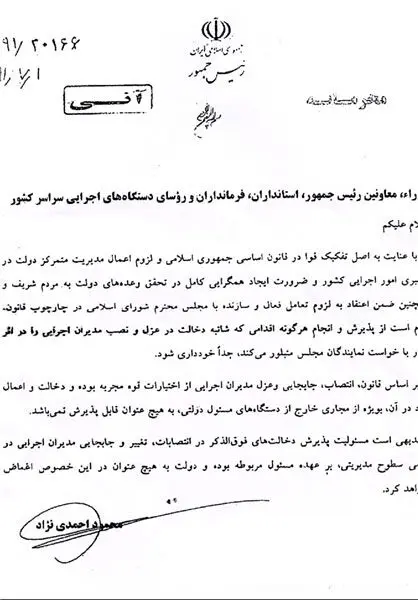 ۹۱/۲۰۱۶۶
جمهوری اسلامی ایران
رئیس جمهور
آنی
راء، معاونین رئیس جمهور، استانداران، فرمانداران و رؤسای دستگاه‌های اجرایی سراسر کشور
لام علیکم
با عنایت به اصل تفکیک قوا در قانون اساسی جمهوری اسلامی و لزوم اعمال مدیریت متمرکز دولت در
بری امور اجرایی کشور و ضرورت ایجاد همگرایی کامل در تحقق وعده‌های دولت به مردم شریف و
چنین ضمن اعتقاد به لزوم تعامل فعال و سازنده با مجلس محترم شورای اسلامی در چارچوب قانون،
م است از پذیرش و انجام هرگونه اقدامی که شائبه دخالت در عزل و نصب مدیران اجرایی را در اثر
ر یا خواست نمایندگان مجلس متبلور می‌کند، جداً خودداری شود.
بر اساس قانون، انتصاب، جابجایی وعزل مدیران اجرایی از اختیارات قوه مجریه بوده و دخالت و اعمال
د در آن، بویژه از مجاری خارج از دستگاه‌های مسئول دولتی، به هیچ عنوان قابل پذیرش نمی‌باشد.
دیهی است مسئولیت پذیرش دخالت‌های فوق‌الذکر در انتصابات، تغییر و جابجایی مدیران اجرایی در
می سطوح مدیریتی، بر عهده مسئول مربوطه بوده و دولت به هیچ عنوان در این خصوص اغماض
اهد کرد.
محمود احمدی نژاد